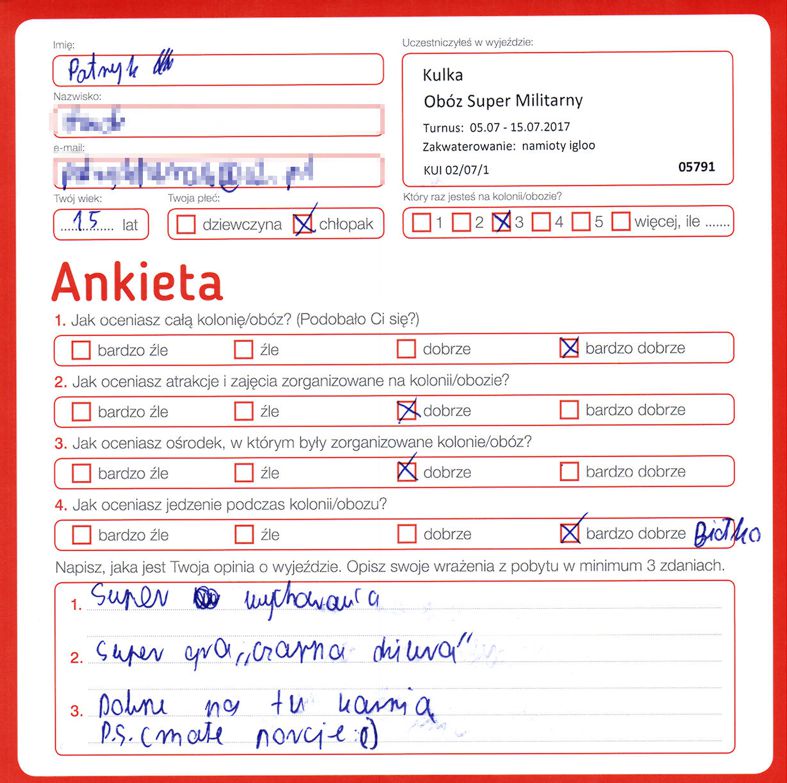 Imię:
Patryk
Uczestniczyłeś w wyjeździe:
Kulka
Obóz Super Militarny
Turnus: 05.07 - 15.07.2017
Zakwaterowanie: namioty igloo
KUI 02/07/1
05791
Nazwisko:
e-mail:
Twój wiek:
15 lat
Twoja płeć:
dziewczyna chłopak
Który raz jesteś na kolonii/obozie?
1 2 3 4 5 więcej, ile .......
Ankieta
1. Jak oceniasz całą kolonię/obóz? (Podobało Ci się?)
bardzo źle źle dobrze bardzo dobrze
2. Jak oceniasz atrakcje i zajęcia zorganizowane na kolonii/obozie?
bardzo źle źle dobrze bardzo dobrze
3. Jak oceniasz ośrodek, w którym były zorganizowane kolonie/obóz?
bardzo źle źle dobrze bardzo dobrze
4. Jak oceniasz jedzenie podczas kolonii/obozu?
bardzo źle źle dobrze bardzo dobrze
Napisz, jaka jest Twoja opinia o wyjeździe. Opisz swoje wrażenia z pobytu w minimum 3 zdaniach.
1. Super
2. Super gra „czarna dziura"
3. Dobrze na tu karmią
P.S. (małe porcje :()